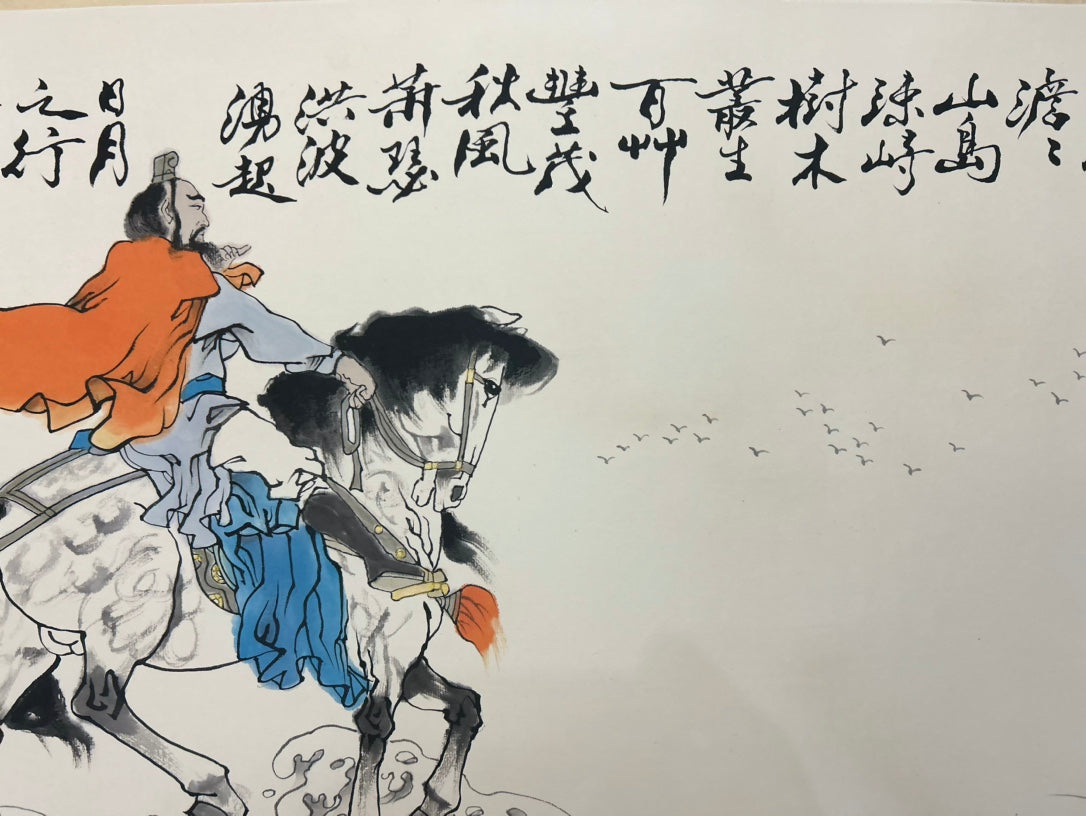 澹〻
山島
竦峙
樹木
叢生
百艸
豐茂
秋風
蕭瑟
洪波
湧起
日月
之行